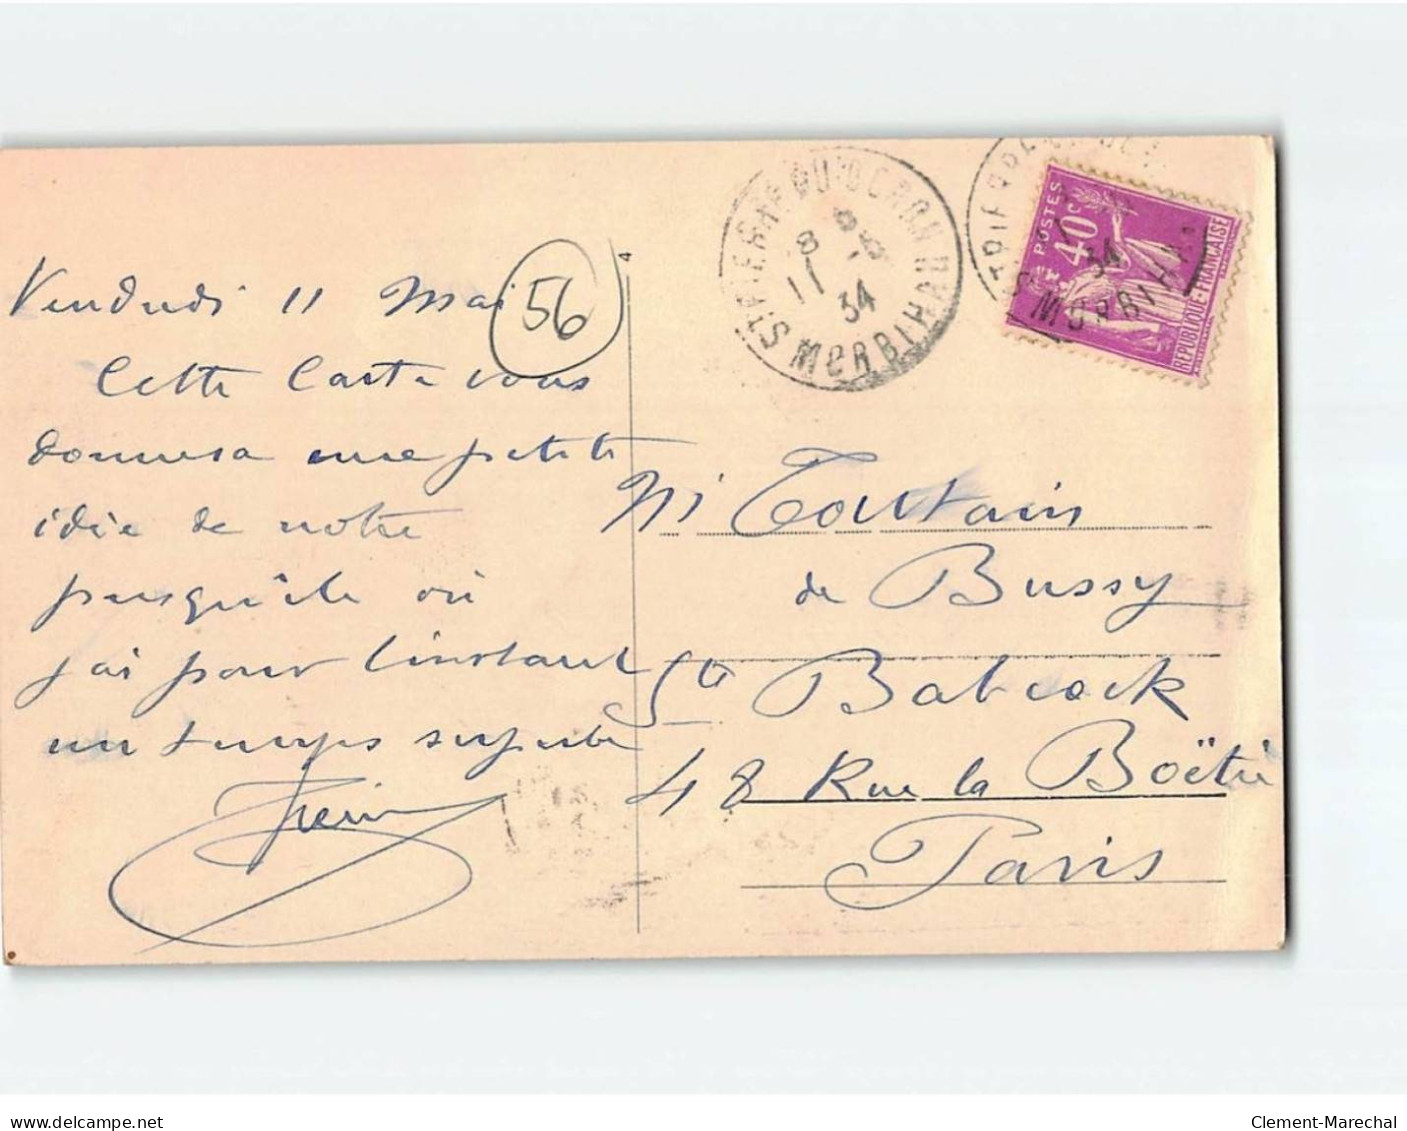 Vendredi 11 Mai
56
Cette Carte vous
donnera une petite
idée de notre
presqu'ile où
j'ai pour l'instant
un temps superbe
ST PIERRE QUIBERON
8
11 -5
34
MORBIHAN
ST PIERRE QUI
34
MORBIHAN
POSTES
40c
REPUBLIQUE-FRANÇAISE
Mr Toutain
de Bussy
Sté Babcock
48 Rue la Boëtie
Paris
Clement-Marechal
delcampe.net